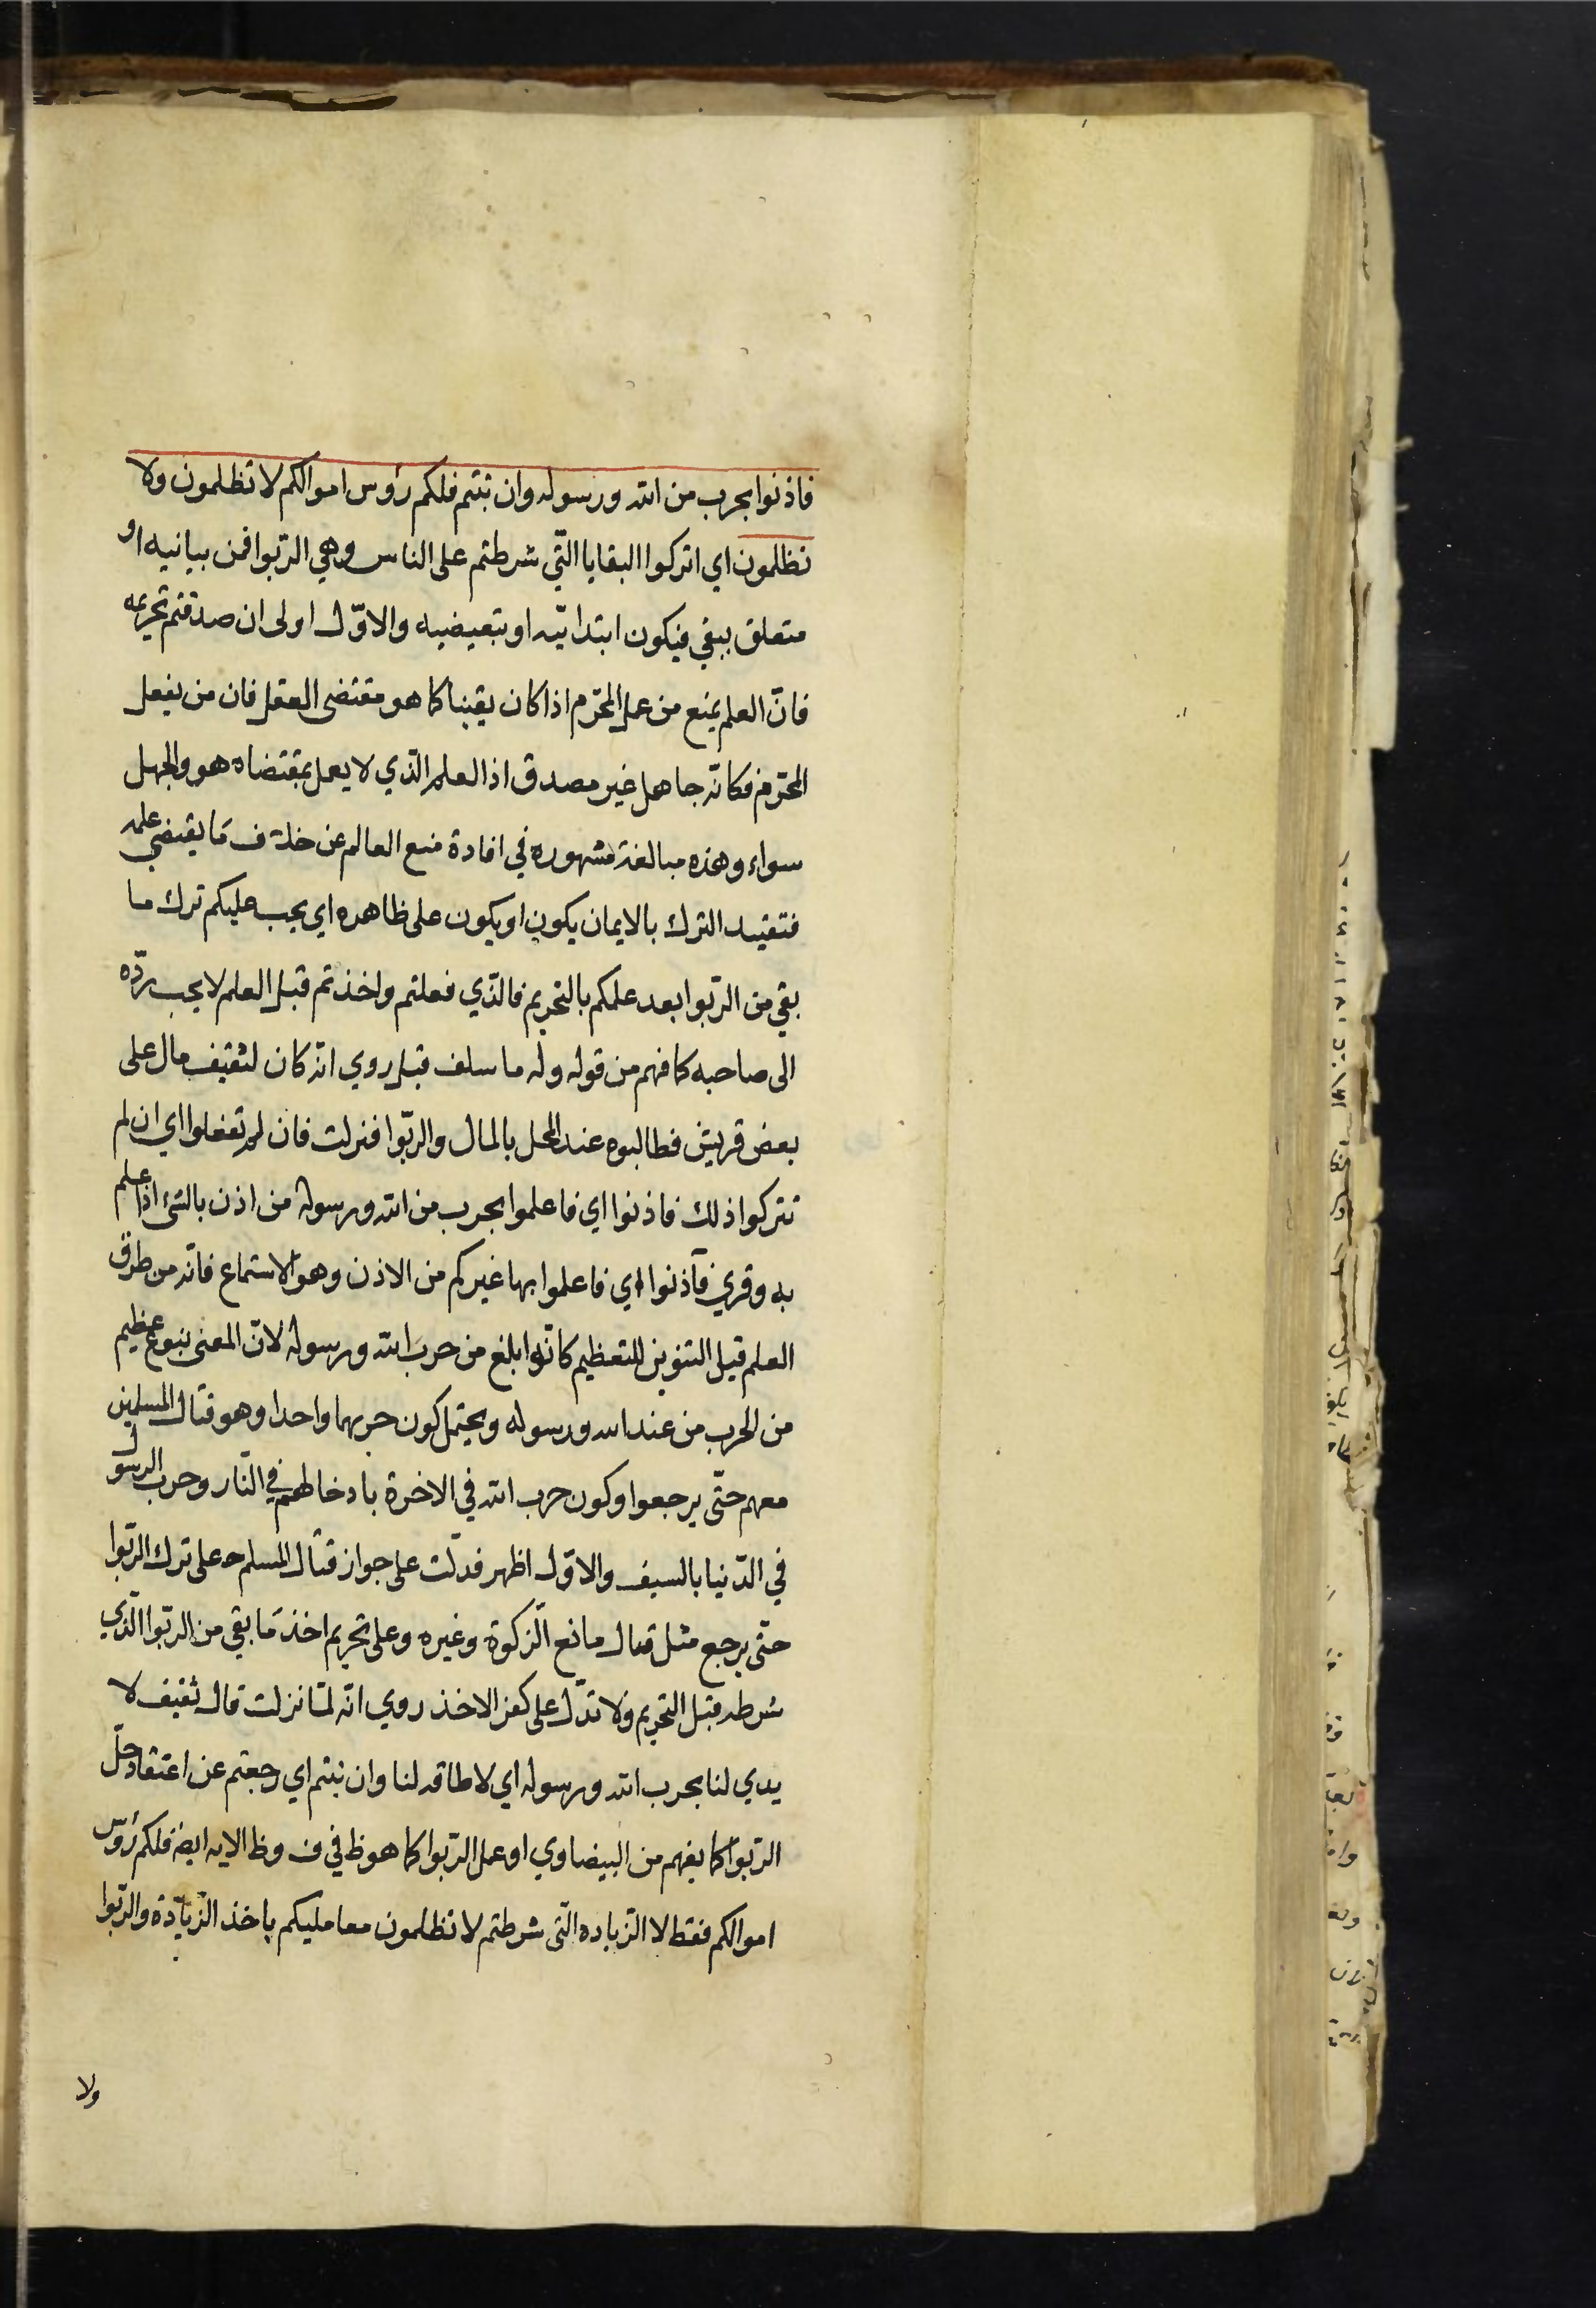 فاذنوا بحرب من الله ورسوله وان تبتم فلكم رؤس اموالكم لا تظلمون ولا
تظلمون اي اتركوا البقايا التّي شرطتم على الناس وهي الرّبوا فمن بيانيه او
متعلق ببقي فيكون ابتدائيّه او تبعيضيه والاوّل اولى ان صدقتم تحريمه
فانّ العلم يمنع من عمل المحّرم اذا كان يقينا كما هو مقتضى العقل فان من يفعل
المحّرم فكانّه جاهل غير مصدق اذ العلم الّذي لا يعمل بمقتضاه هو والجهل
سواء وهذه مبالغة مشهوره في افادة منع العالم عن خلاف مَا يقتضي علمه
فتقييد الترك بالايمان يكون او يكون على ظاهره اي يجب عليكم ترك ما
بقي من الرّبوا بعد علمكم بالتحريم فالّذي فعلتم واخذتم قبل العلم لا يجب ردّه
الى صاحبه كما فهم من قوله وله ما سلف قيل روي انّه كان لثقيف مال على
بعض قريش فطالبوه عند المحل بالمال والربّوا فنزلت فان لم تفعلوا اي ان لم
تتركوا ذلك فاذنوا اي فاعلموا بحرب من الله ورسوله من اذن بالشئ اذا علم
به وقري فآذنوا اي فاعلموا بها غيركم من الاذن وهو الاستماع فانّه من طرق
العلم قيل التنوين للتعظيم كانّه ابلغ من حرب الله ورسوله لانّ المعنى بنوع عظيم
من الحرب من عند الله ورسوله ويحتمل كون حربهما واحدا وهو قتال المسلمين
معهم حتّى يرجعوا وكون حرب الله في الاخرة بادخالهم في النّار وحرب الرسول
في الدّنيا بالسيف والاوّل اظهر فدلّت على جواز قتال المسلم على ترك الرّبوا
حتّى يرجع مثل قتال مانع الّزكوة وغيره وعلى تحريم اخذ مَا بقي من الربّوا الّذي
شرطه قبل التحريم ولا تدّل على كفر الاخذ روي انّه لمّا نزلت قال ثقيف لا
يدي لنا بحرب الله ورسوله اي لا طاقه لنا وان تبتم اي رجعتم عن اعتقاد حلّ
الرّبوا كما يفهم من البيضاوي او عمل الرّبوا كما هو ظ في ف وظ الايه ايضا فلكم رؤس
اموالكم فقط لا الزّياده التّي شرطتم لا تظلمون معامليكم باخذ الزّيادة والرّبوا
ولا